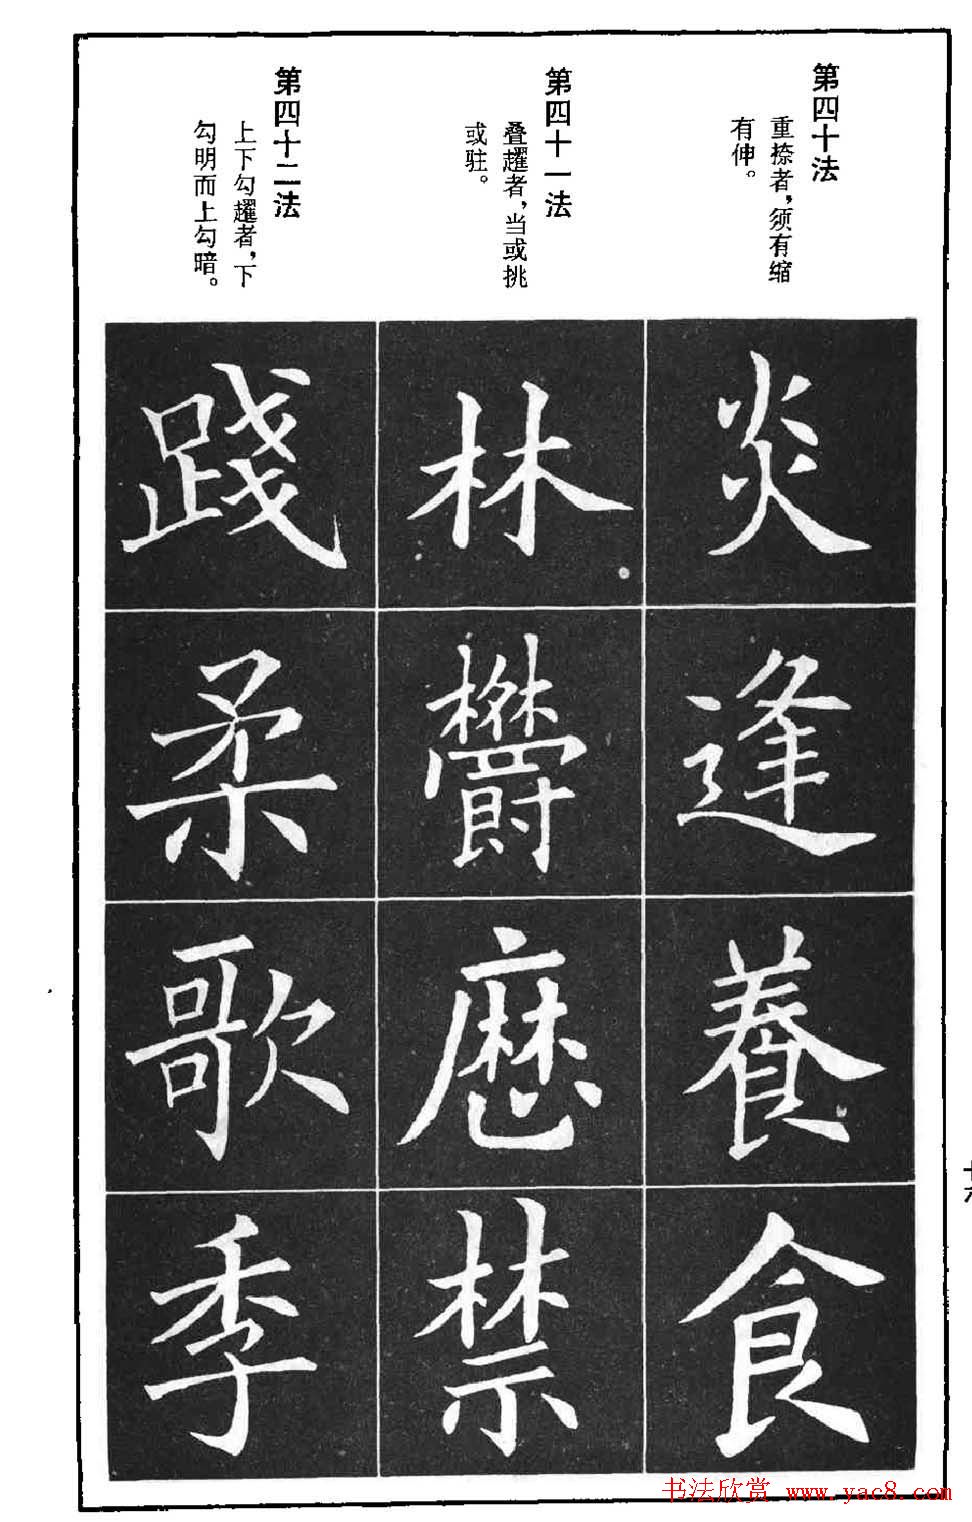 第四十法
重捺者，须有缩
有伸。
炎
逢
養
食
第四十一法
叠趯者，当或挑
或驻。
林
欝
麿
禁
第四十二法
上下勾趯者，下
勾明而上勾暗。
踐
柔
歌
季
书法欣赏 www.yac8.com